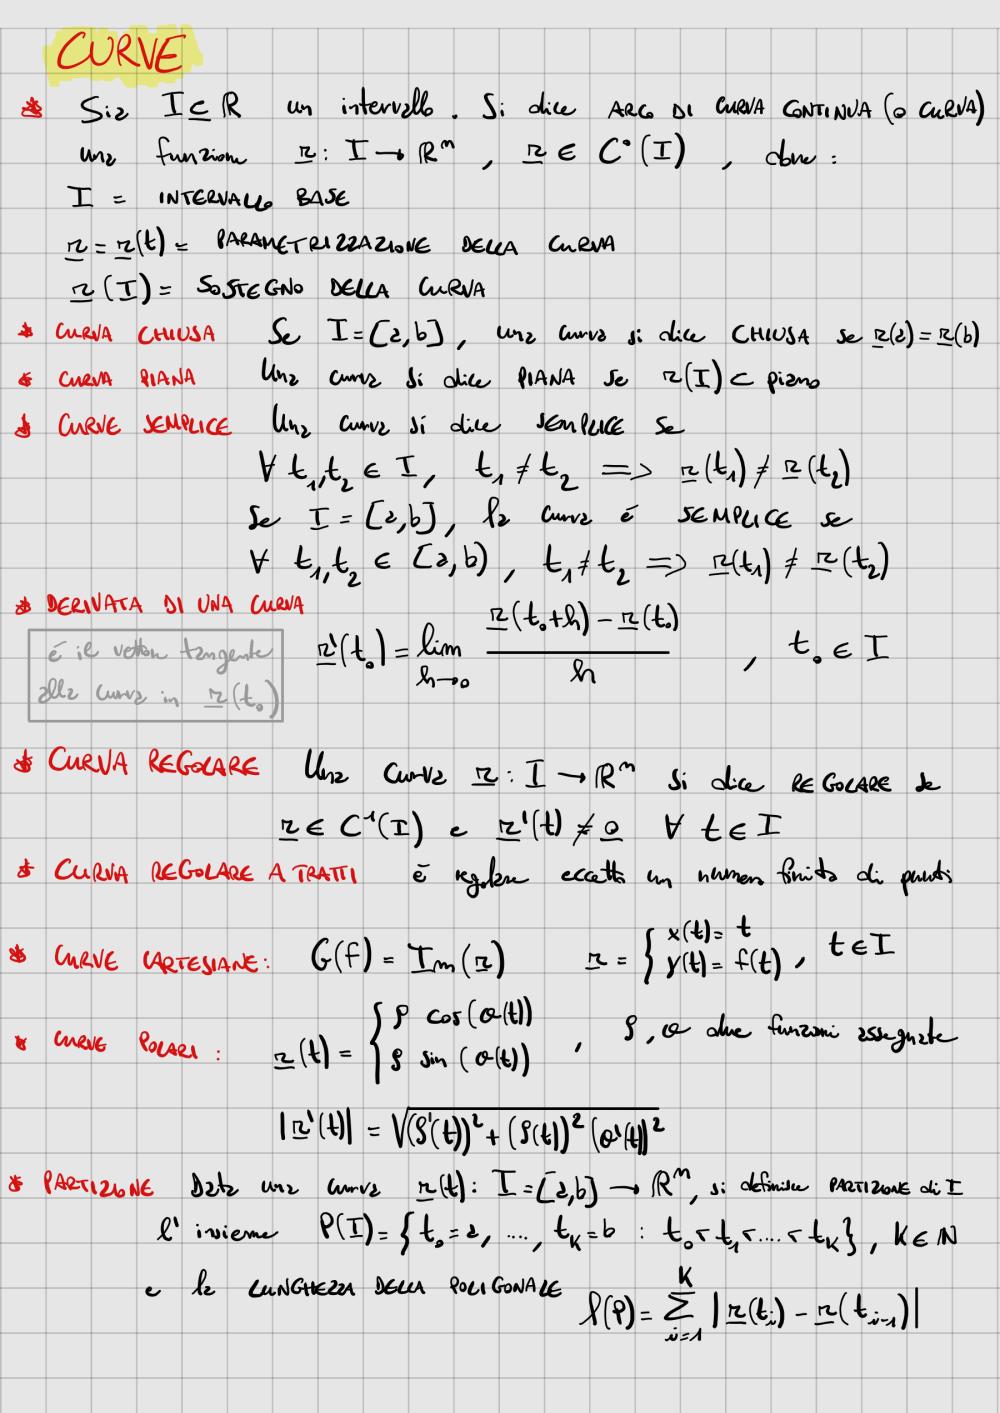 CURVE
* Sia I ⊆ ℝ un intervallo. Si dice ARCO DI CURVA CONTINUA (O CURVA)
una funzione r: I → ℝⁿ, r ∈ C°(I), dove:
I = INTERVALLO BASE
r = r(t) = PARAMETRIZZAZIONE DELLA CURVA
r(I) = SOSTEGNO DELLA CURVA
* CURVA CHIUSA Se I = [a,b], una curva si dice CHIUSA se r(a) = r(b)
* CURVA PIANA Una curva si dice PIANA se r(I) ⊂ piano
* CURVE SEMPLICE Una curva si dice SEMPLICE se
∀ t₁,t₂ ∈ I, t₁ ≠ t₂ => r(t₁) ≠ r(t₂)
Se I = [a,b], la curva é SEMPLICE se
∀ t₁,t₂ ∈ [a,b), t₁ ≠ t₂ => r(t₁) ≠ r(t₂)
* DERIVATA DI UNA CURVA
r'(t₀) = lim h→0 (r(t₀+h) - r(t₀)) / h , t₀ ∈ I
é il vettore tangente
alla curva in r(t₀)
* CURVA REGOLARE Una curva r: I → ℝⁿ si dice REGOLARE se
r ∈ C¹(I) e r'(t) ≠ 0 ∀ t ∈ I
* CURVA REGOLARE A TRATTI é regolare eccetto un numero finito di punti
* CURVE CARTESIANE: G(f) = Im(r) r = { x(t) = t
y(t) = f(t) , t ∈ I
* CURVE POLARI: r(t) = { ρ cos(θ(t))
ρ sin(θ(t)) , ρ, θ due funzioni assegnate
|r'(t)| = √((ρ'(t))² + (ρ(t))² (θ'(t))²
* PARTIZIONE Data una curva r(t): I = [a,b] → ℝⁿ, si definisce PARTIZIONE di I
l'insieme P(I) = { t₀ = a, ...., t_K = b : t₀ < t₁ < .... < t_K }, K ∈ ℕ
e la LUNGHEZZA DELLA POLIGONALE l(P) = ∑_{i=1}^{K} |r(t_i) - r(t_{i-1})|